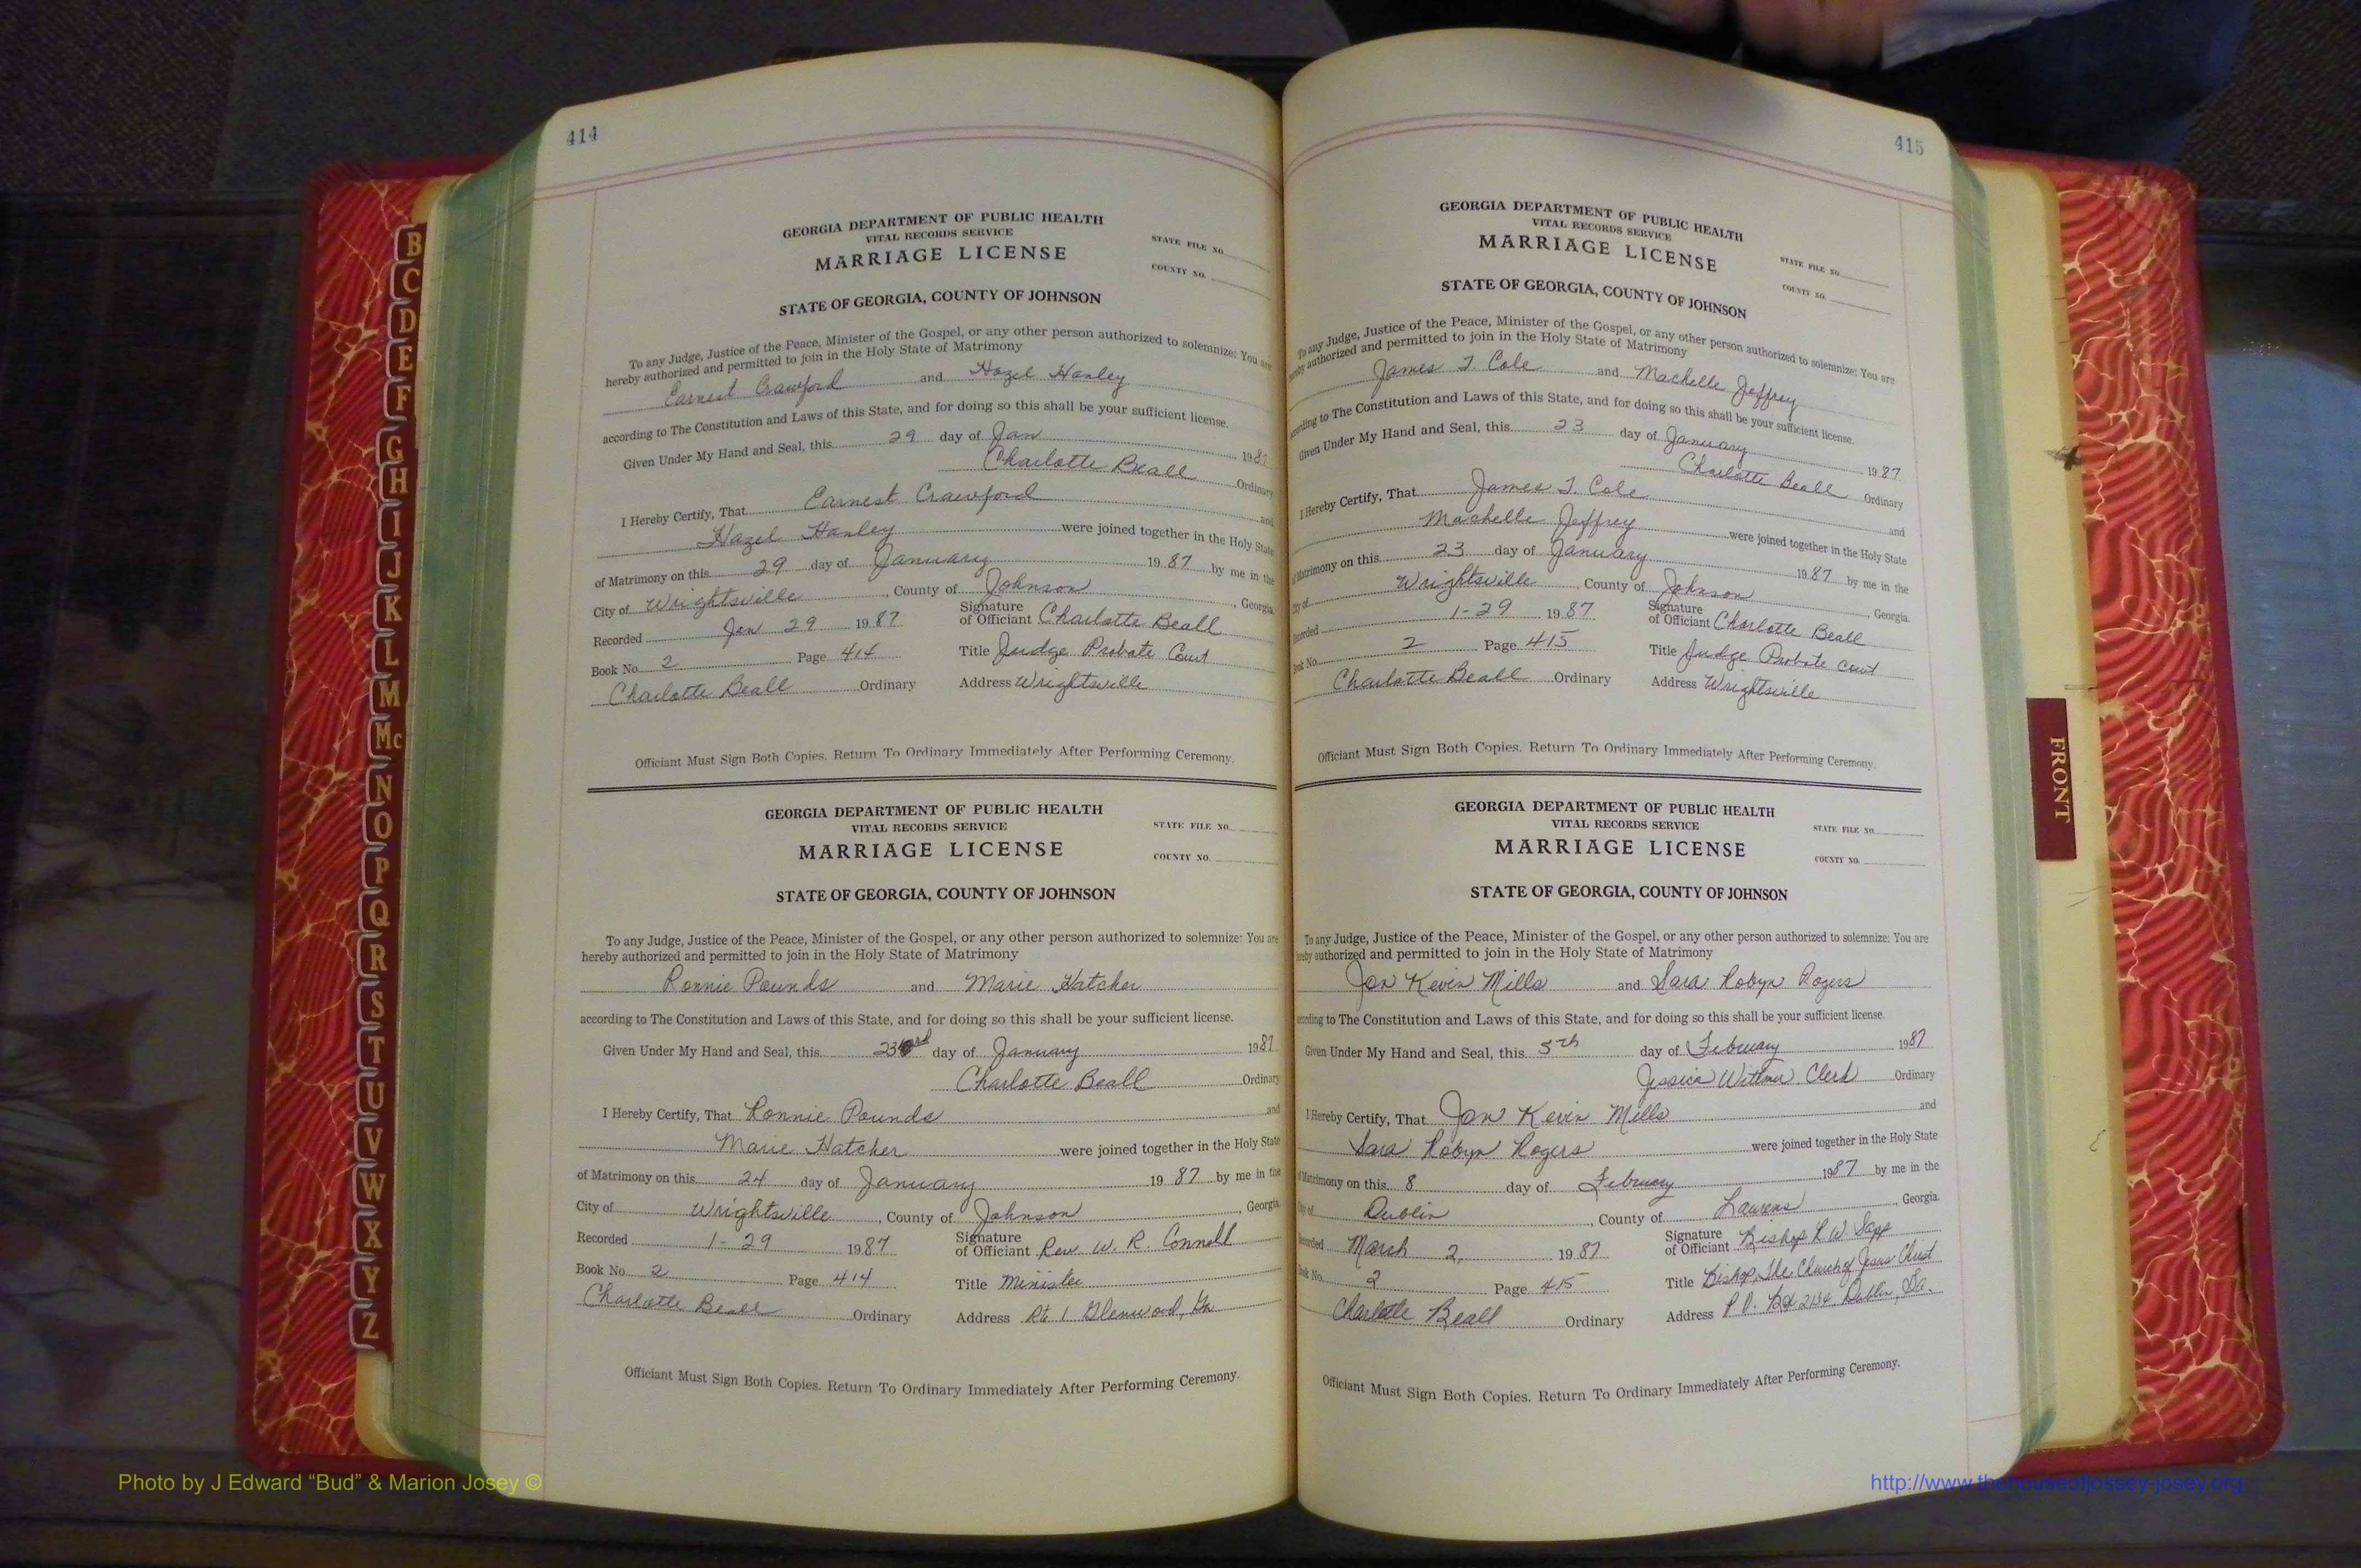 414
GEORGIA DEPARTMENT OF PUBLIC HEALTH
VITAL RECORDS SERVICE
MARRIAGE LICENSE
STATE FILE NO.
COUNTY NO.
STATE OF GEORGIA, COUNTY OF JOHNSON
To any Judge, Justice of the Peace, Minister of the Gospel, or any other person authorized to solemnize: You are
hereby authorized and permitted to join in the Holy State of Matrimony
Earnest Crawford and Hazel Hanley
according to The Constitution and Laws of this State, and for doing so this shall be your sufficient license.
Given Under My Hand and Seal, this 29 day of Jan 1987
Charlotte Beall Ordinary
I Hereby Certify, That Earnest Crawford and
Hazel Hanley were joined together in the Holy State
of Matrimony on this 29 day of January 1987 by me in the
City of Wrightsville, County of Johnson, Georgia
Recorded Jan 29 1987 Signature of Officiant Charlotte Beall
Book No. 2 Page 414 Title Judge Probate Court
Charlotte Beall Ordinary Address Wrightsville
Officiant Must Sign Both Copies. Return To Ordinary Immediately After Performing Ceremony.
GEORGIA DEPARTMENT OF PUBLIC HEALTH
VITAL RECORDS SERVICE
MARRIAGE LICENSE
STATE FILE NO.
COUNTY NO.
STATE OF GEORGIA, COUNTY OF JOHNSON
To any Judge, Justice of the Peace, Minister of the Gospel, or any other person authorized to solemnize: You are
hereby authorized and permitted to join in the Holy State of Matrimony
Ronnie Pounds and Marie Hatcher
according to The Constitution and Laws of this State, and for doing so this shall be your sufficient license.
Given Under My Hand and Seal, this 23rd day of January 1987
Charlotte Beall Ordinary
I Hereby Certify, That Ronnie Pounds and
Marie Hatcher were joined together in the Holy State
of Matrimony on this 24 day of January 1987 by me in the
City of Wrightsville, County of Johnson, Georgia
Recorded 1-29 1987 Signature of Officiant Rev. W. R. Connell
Book No. 2 Page 414 Title Minister
Charlotte Beall Ordinary Address Rt 1 Glenwood, Ga
Officiant Must Sign Both Copies. Return To Ordinary Immediately After Performing Ceremony.
415
GEORGIA DEPARTMENT OF PUBLIC HEALTH
VITAL RECORDS SERVICE
MARRIAGE LICENSE
STATE FILE NO.
COUNTY NO.
STATE OF GEORGIA, COUNTY OF JOHNSON
To any Judge, Justice of the Peace, Minister of the Gospel, or any other person authorized to solemnize: You are
hereby authorized and permitted to join in the Holy State of Matrimony
James T. Cole and Machelle Jeffrey
according to The Constitution and Laws of this State, and for doing so this shall be your sufficient license.
Given Under My Hand and Seal, this 23 day of January 1987
Charlotte Beall Ordinary
I Hereby Certify, That James T. Cole and
Machelle Jeffrey were joined together in the Holy State
of Matrimony on this 23 day of January 1987 by me in the
City of Wrightsville, County of Johnson, Georgia.
Recorded 1-29 1987 Signature of Officiant Charlotte Beall
Book No. 2 Page 415 Title Judge Probate Court
Charlotte Beall Ordinary Address Wrightsville
Officiant Must Sign Both Copies. Return To Ordinary Immediately After Performing Ceremony.
GEORGIA DEPARTMENT OF PUBLIC HEALTH
VITAL RECORDS SERVICE
MARRIAGE LICENSE
STATE FILE NO.
COUNTY NO.
STATE OF GEORGIA, COUNTY OF JOHNSON
To any Judge, Justice of the Peace, Minister of the Gospel, or any other person authorized to solemnize: You are
hereby authorized and permitted to join in the Holy State of Matrimony
Jon Kevin Mills and Sara Robyn Rogers
according to The Constitution and Laws of this State, and for doing so this shall be your sufficient license.
Given Under My Hand and Seal, this 5th day of February 1987
Jessica Clerk Ordinary
I Hereby Certify, That Jon Kevin Mills and
Sara Robyn Rogers were joined together in the Holy State
of Matrimony on this 8 day of February 1987 by me in the
City of Dublin, County of Laurens, Georgia.
Recorded March 2, 1987 Signature of Officiant Bishop R W Sapp
Book No. 2 Page 415 Title Bishop, The Church of Jesus Christ
Charlotte Beall Ordinary Address P.O. Box 2134, Dublin, Ga.
Officiant Must Sign Both Copies. Return To Ordinary Immediately After Performing Ceremony.
B
C
D
E
F
G
H
I
J
K
L
M
Mc
N
O
P
Q
R
S
T
U
V
W
X
Y
Z
FRONT
Photo by J Edward “Bud” & Marion Josey ©
http://www.thehouseofjossey-josey.org